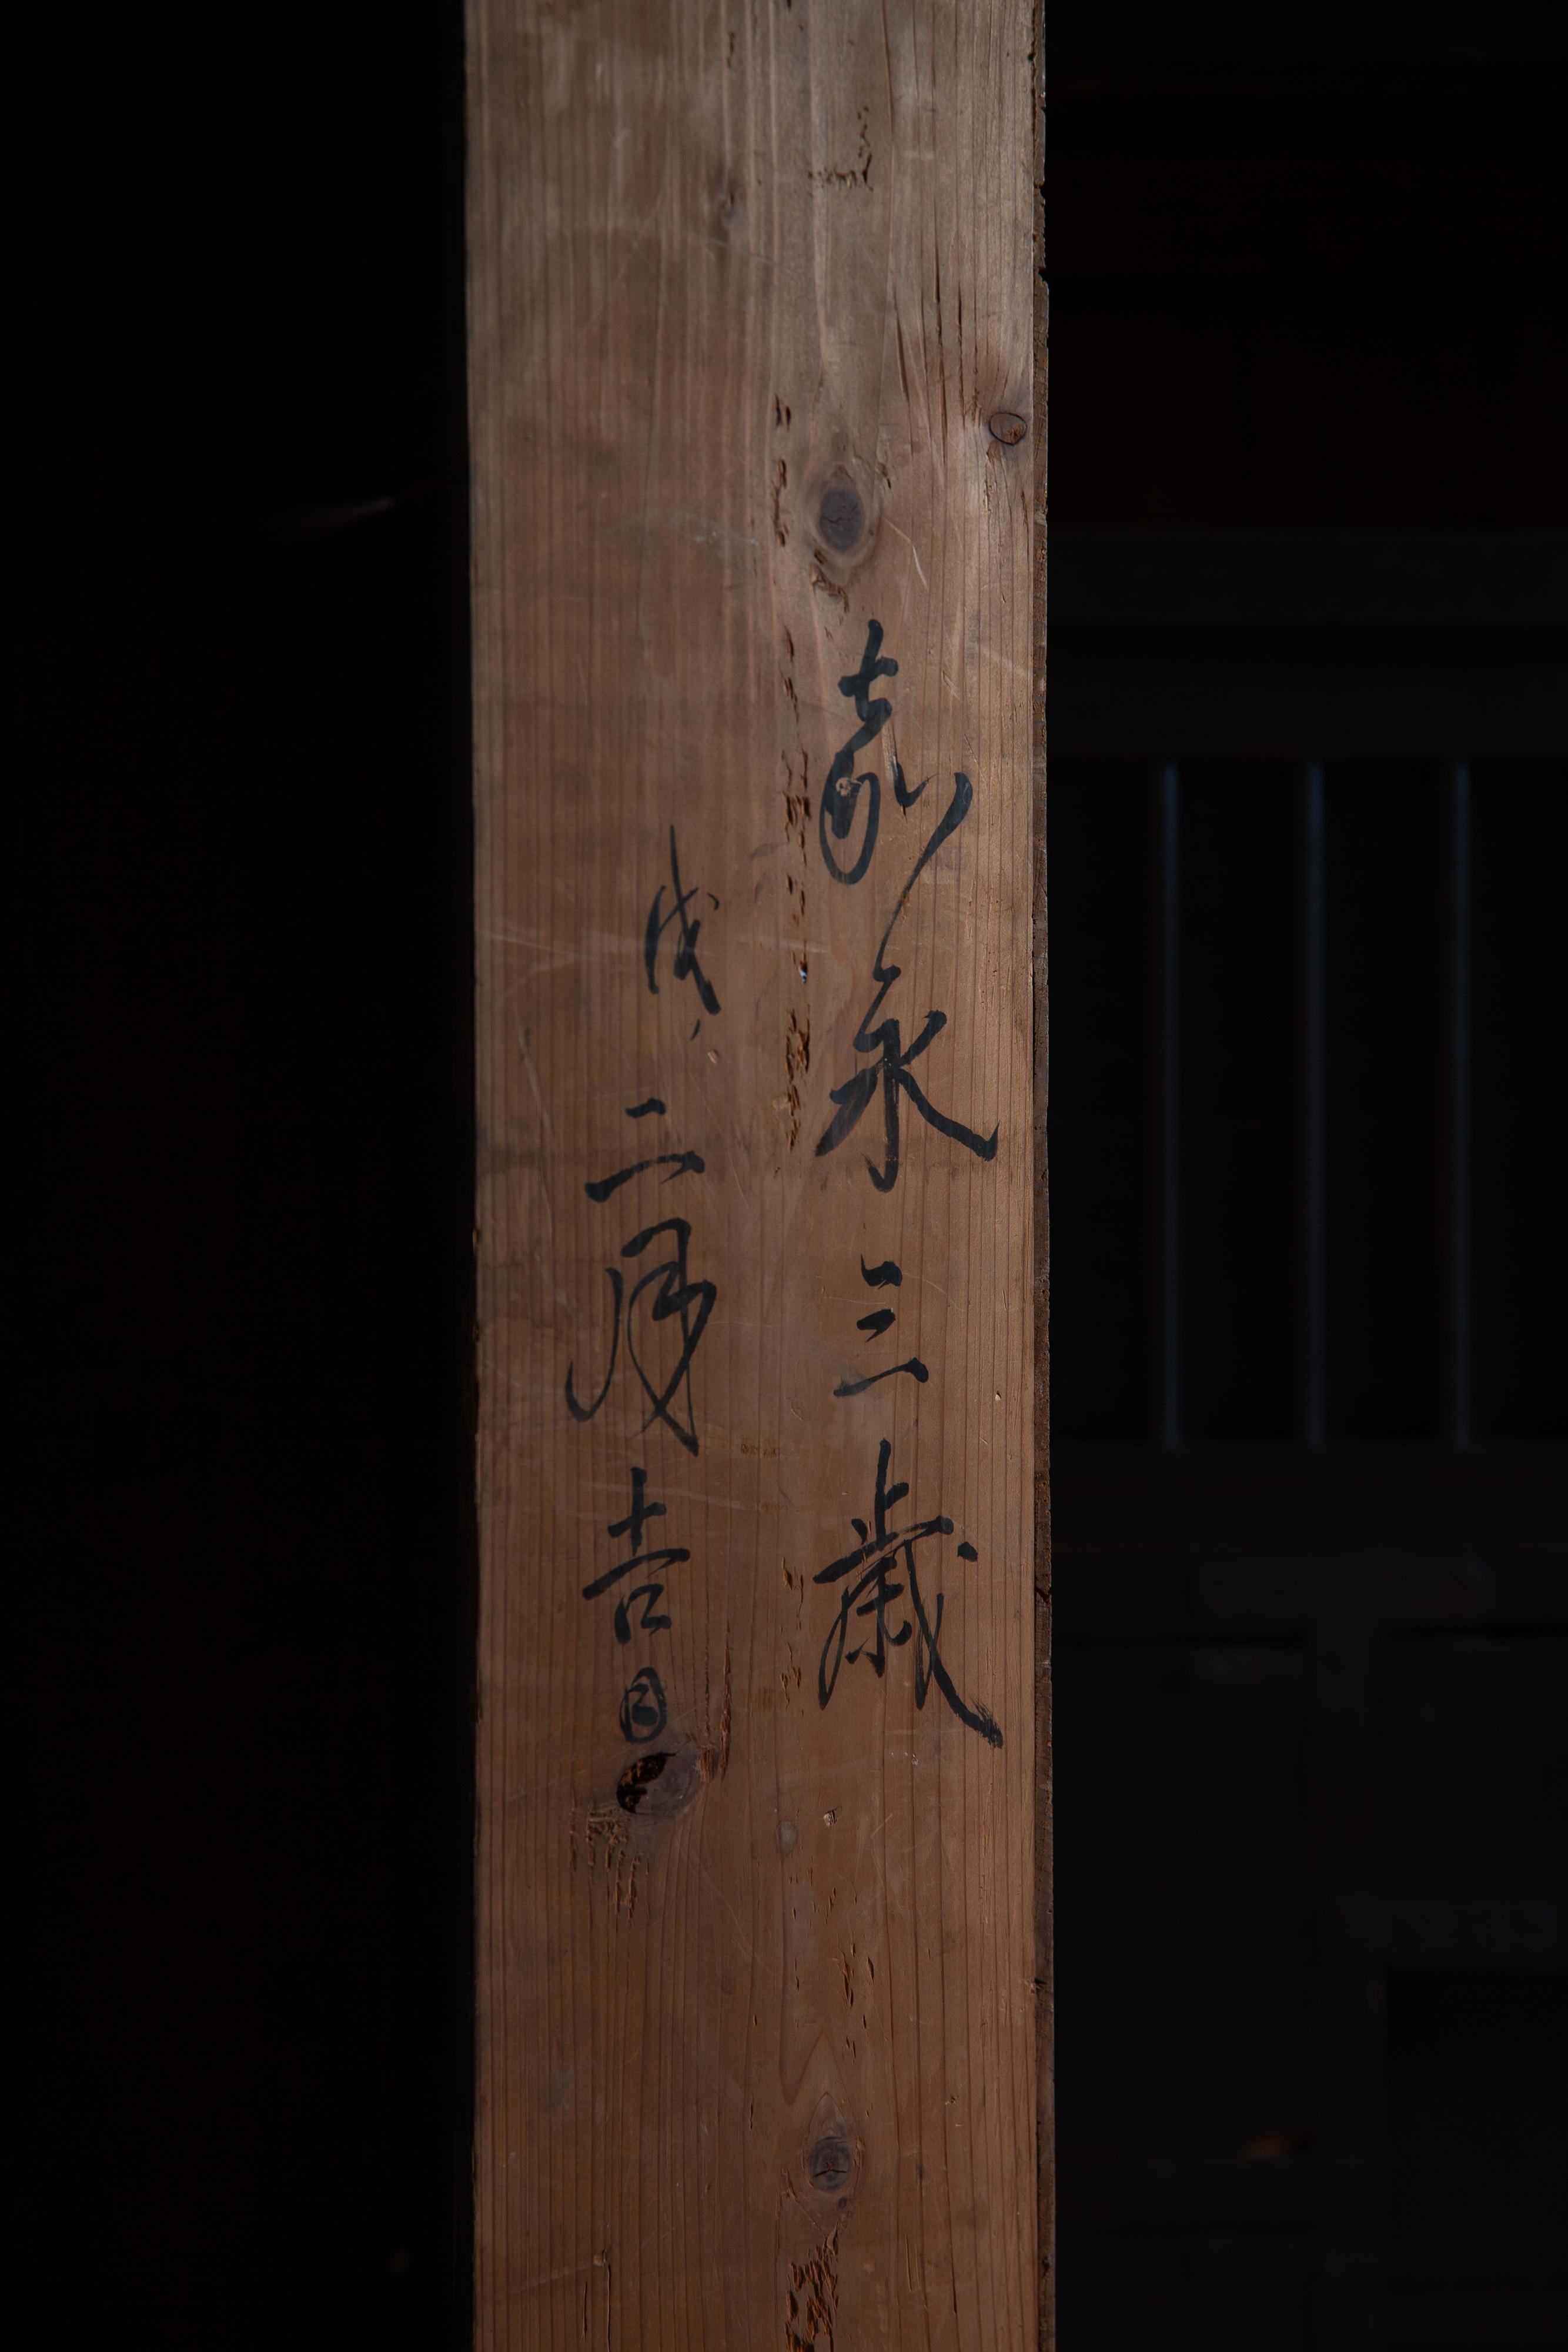 嘉永三歳
戌二月吉日